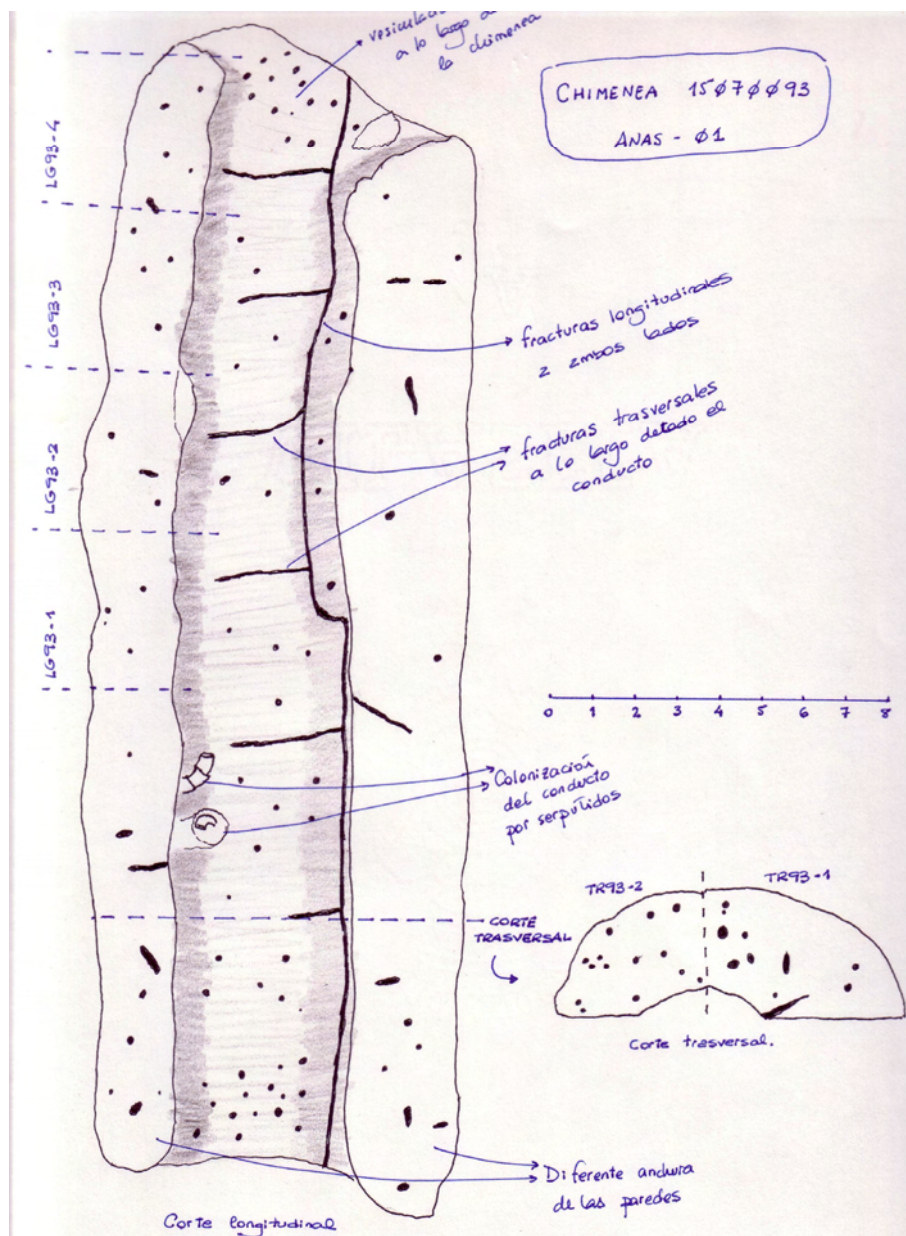 vesiculac
a lo largo d
la chimenea
CHIMENEA 15Ø7ØØ93
ANAS - Ø1
LG93-4
LG93-3
LG93-2
LG93-1
fracturas longitudinales
a ambos lados
fracturas trasversales
a lo largo detodo el
conducto
0 1 2 3 4 5 6 7 8
Colonización
del conducto
por serpúlidos
CORTE
TRASVERSAL
TR93-2 TR93-1
Corte trasversal.
Diferente anchura
de las paredes
Corte longitudinal